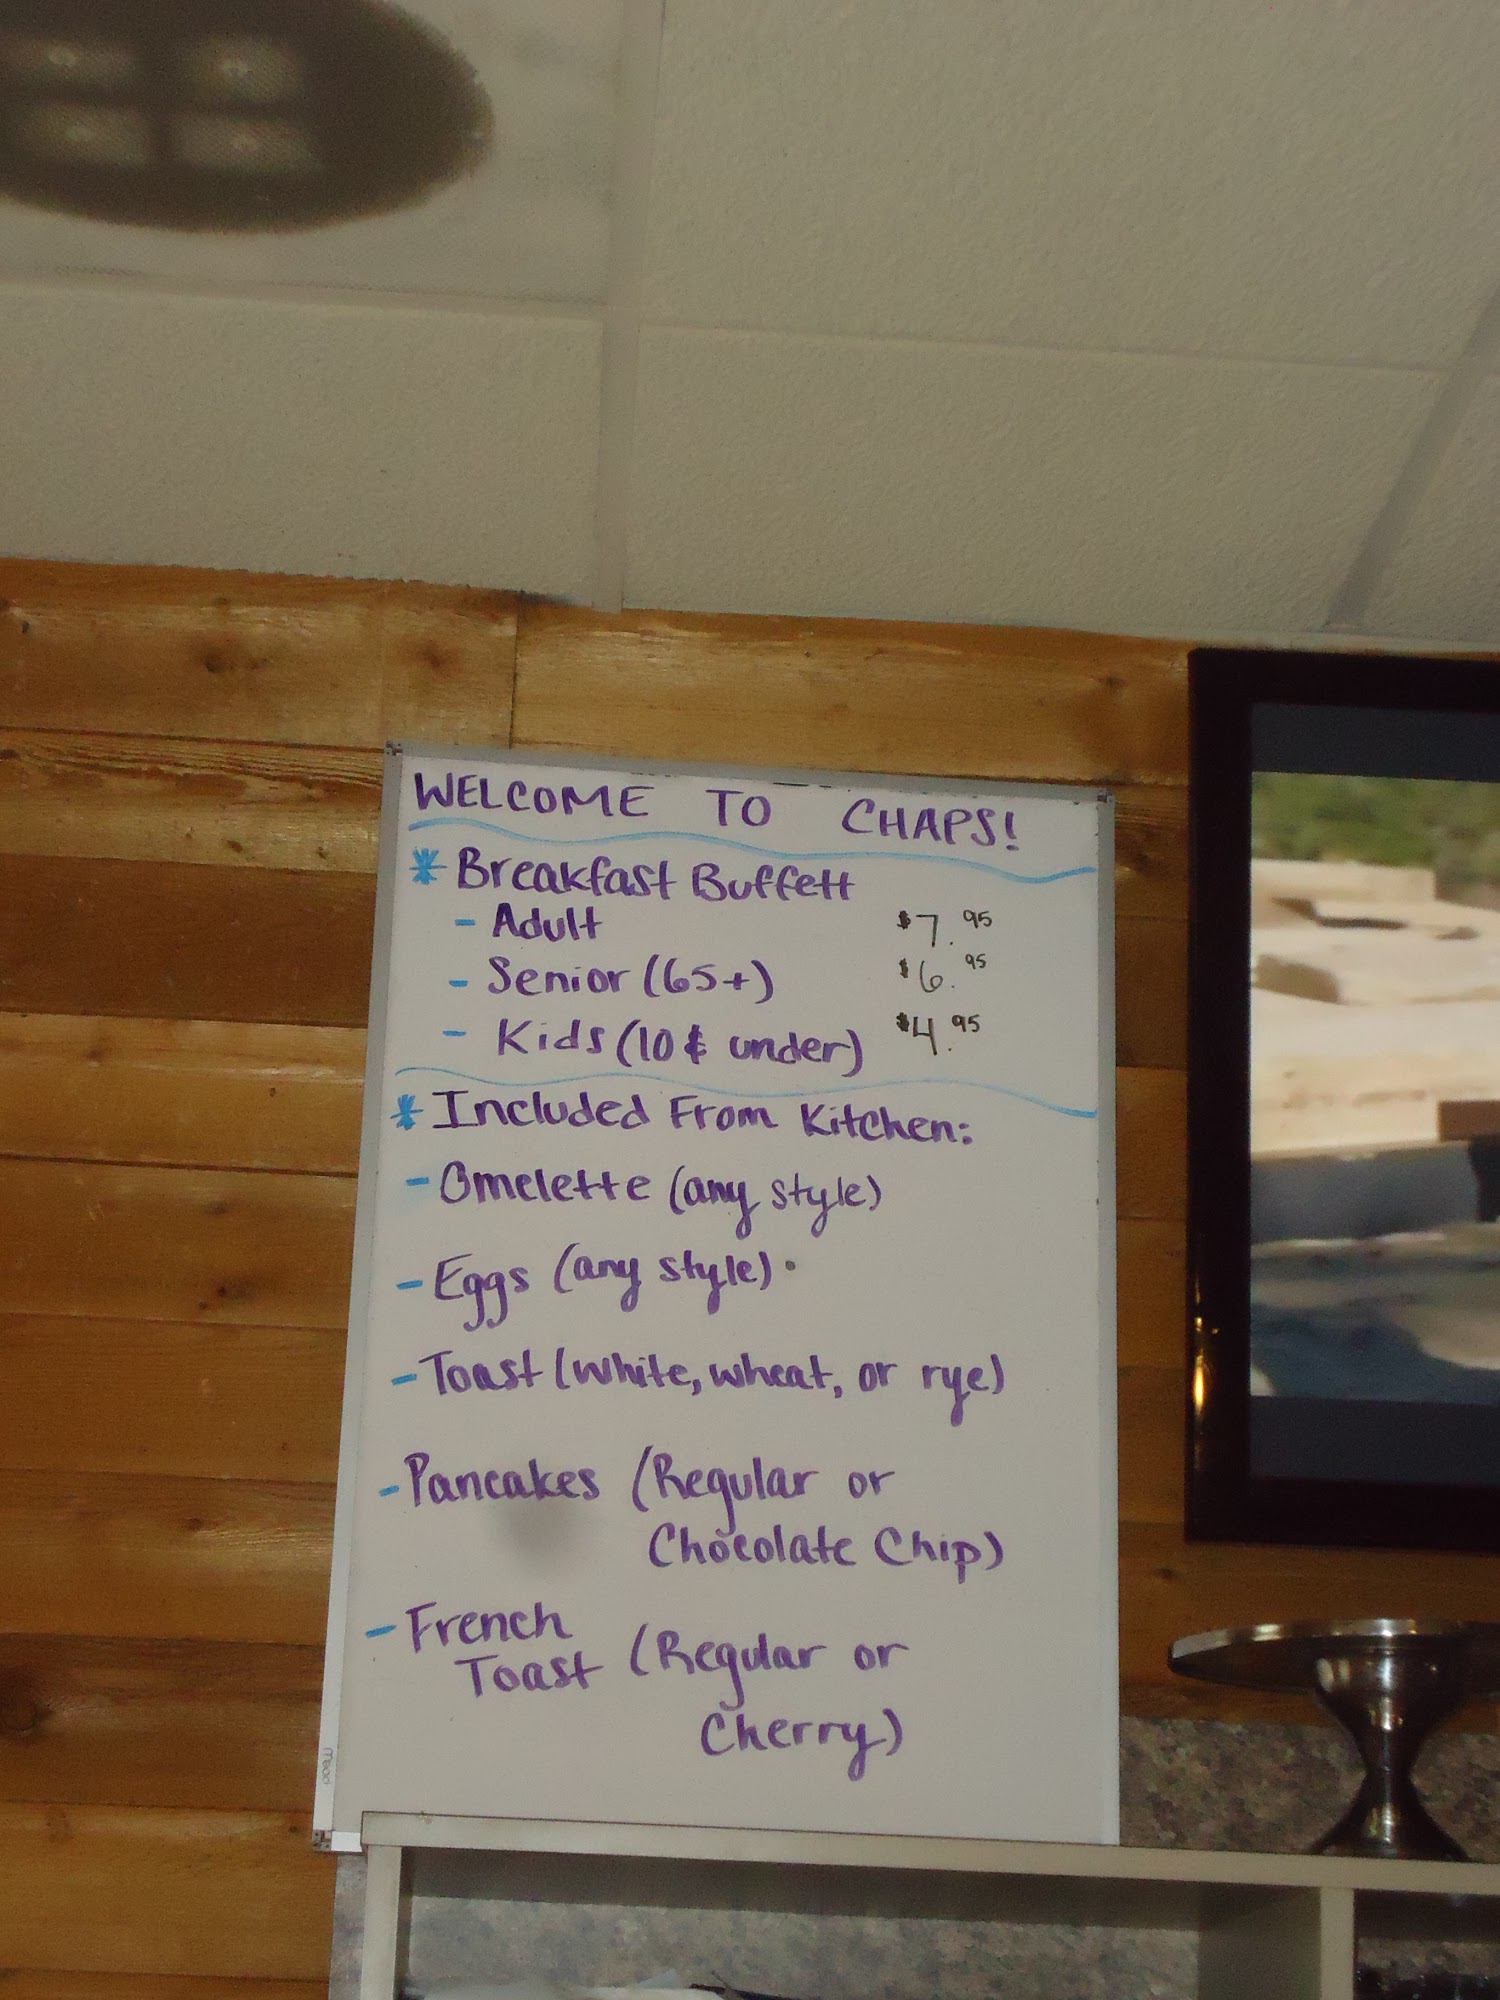 WELCOME TO CHAPS!
* Breakfast Buffett
- Adult $7.95
- Senior (65+) $6.95
- Kids (10 & under) $4.95
* Included From Kitchen:
- Omelette (any style)
- Eggs (any style)
- Toast (White, wheat, or rye)
- Pancakes (Regular or
Chocolate Chip)
- French
Toast (Regular or
Cherry)
Mead